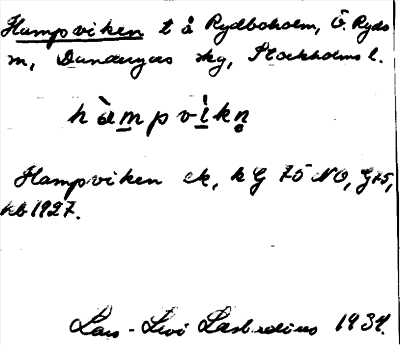 Hampviken t å Rydboholm, Ö. Ryds
sn, Danderyds skg, Stockholms l.
hàmpvìkn̥
Hampviken ek, kG 75 NO, G45,
kb 1927.
Lars-Levi Læstadius 1934.